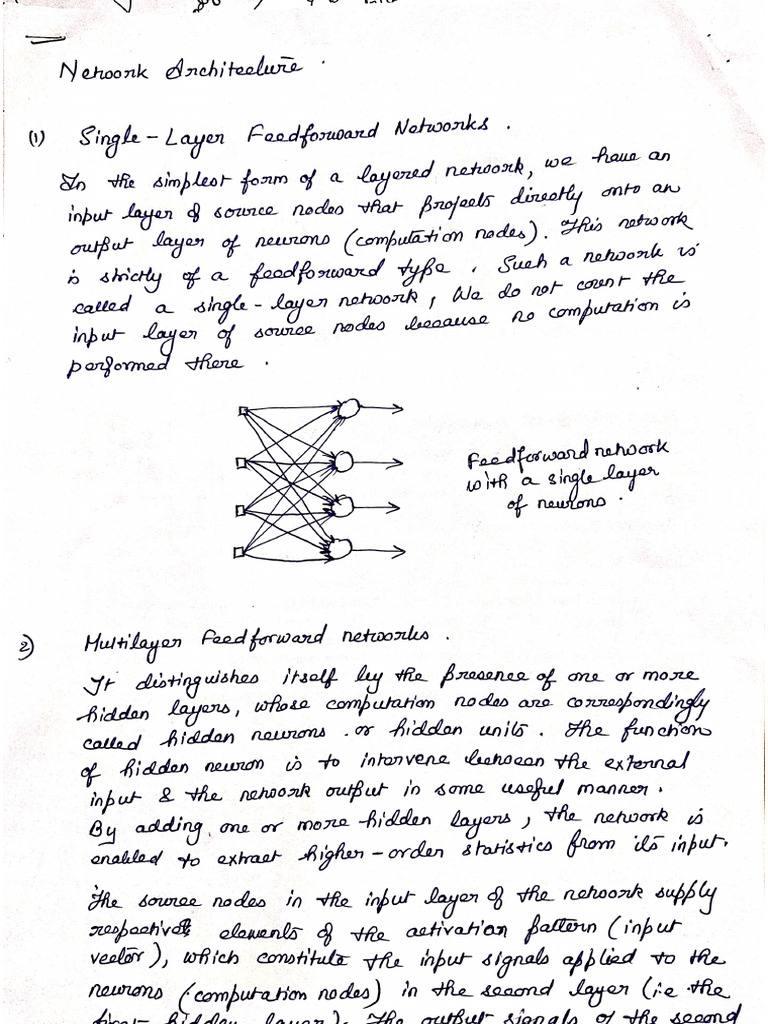 Network Architecture .
(1) Single-Layer Feedforward Networks .
In the simplest form of a layered network, we have an
input layer of source nodes that projects directly onto an
output layer of neurons (computation nodes). This network
is strictly of a feedforward type . Such a network is
called a single-layer network, We do not count the
input layer of source nodes because no computation is
performed there .
Feedforward network
with a single layer
of neurons .
2) Multilayer Feedforward networks .
It distinguishes itself by the presence of one or more
hidden layers, whose computation nodes are correspondingly
called hidden neurons . or hidden units . The function
of hidden neuron is to intervene between the external
input & the network output in some useful manner .
By adding one or more hidden layers, the network is
enabled to extract higher-order statistics from its input.
The source nodes in the input layer of the network supply
respective elements of the activation pattern (input
vector), which constitute the input signals applied to the
neurons (computation nodes) in the second layer (i.e the
first hidden layer). The output signals of the second